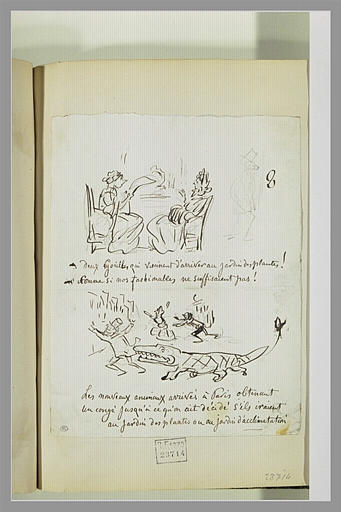 8
— deux Gorilles qui viennent d'arriver au jardin des plantes !
— Comme si nos fashionables ne suffisaient pas !
Les nouveaux animaux arrivés à Paris obtinent
un congé jusqu'à ce qu'on ait décidé s'ils iraient
au jardin des plantes ou au jardin d'acclimatation
23714
23714